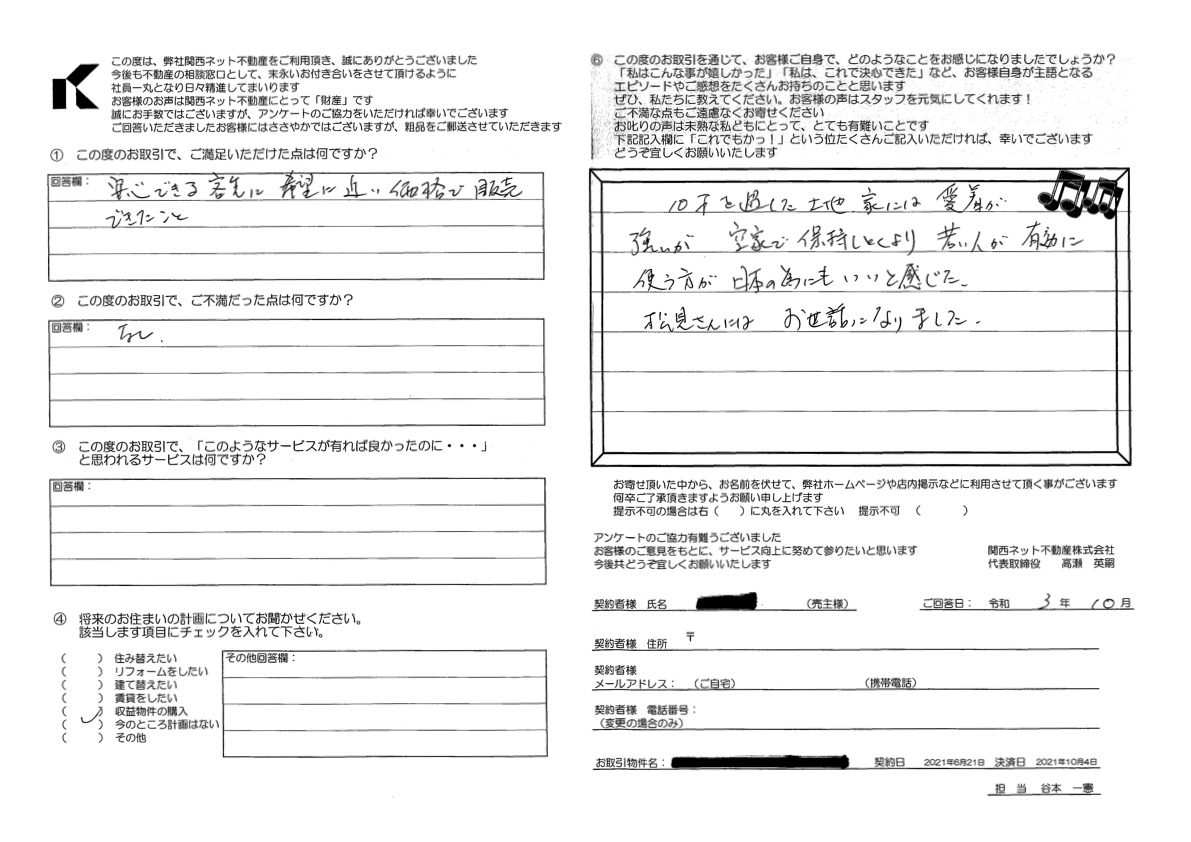 この度は、弊社関西ネット不動産をご利用頂き、誠にありがとうございました
今後も不動産の相談窓口として、末永いお付き合いをさせて頂けるように
社員一丸となり日々精進してまいります
お客様のお声は関西ネット不動産にとって「財産」です
誠にお手数ではございますが、アンケートのご協力をいただければ幸いでございます
ご回答いただきましたお客様にはささやかではございますが、粗品をご郵送させていただきます
① この度のお取引で、ご満足いただけた点は何ですか？
回答欄：
安心できる客先に 希望に近い価格で販売
できたこと
② この度のお取引で、ご不満だった点は何ですか？
回答欄：
なし.
③ この度のお取引で、「このようなサービスが有れば良かったのに・・・」
と思われるサービスは何ですか？
回答欄：
④ 将来のお住まいの計画についてお聞かせください。
該当します項目にチェックを入れて下さい。
（　　）住み替えたい
（　　）リフォームをしたい
（　　）建て替えたい
（　　）賃貸をしたい
（　　）収益物件の購入
（ ✓ ）今のところ計画はない
（　　）その他
その他回答欄：
⑥ この度のお取引を通じて、お客様ご自身で、どのようなことをお感じになりましたでしょうか？
「私はこんな事が嬉しかった」「私は、これで決心できた」など、お客様自身が主語となる
エピソードやご感想をたくさんお持ちのことと思います
ぜひ、私たちに教えてください。お客様の声はスタッフを元気にしてくれます！
ご不満な点もご遠慮なくお寄せください
お叱りの声は未熟な私どもにとって、とても有難いことです
下記記入欄に「これでもかっ！」という位たくさんご記入いただければ、幸いでございます
どうぞ宜しくお願いいたします
を過した土地 家には 愛着が
強いが 空家で保持しとくより 若い人が 有効に
使う方が 日本の為にもいいと感じた.
松見さんには お世話になりました.
お寄せ頂いた中から、お名前を伏せて、弊社ホームページや店内掲示などに利用させて頂く事がございます
何卒ご了承頂きますようお願い申し上げます
提示不可の場合は右（　　）に丸を入れて下さい　提示不可　（　　　）
アンケートのご協力有難うございました
お客様のご意見をもとに、サービス向上に努めて参りたいと思います
今後共どうぞ宜しくお願いいたします
関西ネット不動産株式会社
代表取締役　高瀬　英嗣
契約者様 氏名　（売主様）　ご回答日：　令和　3 年　10 月
契約者様 住所　〒
契約者様
メールアドレス：　（ご自宅）　（携帯電話）
契約者様 電話番号：
（変更の場合のみ）
お取引物件名：　契約日　2021年6月21日　決済日　2021年10月4日
担　当　谷本　一憲